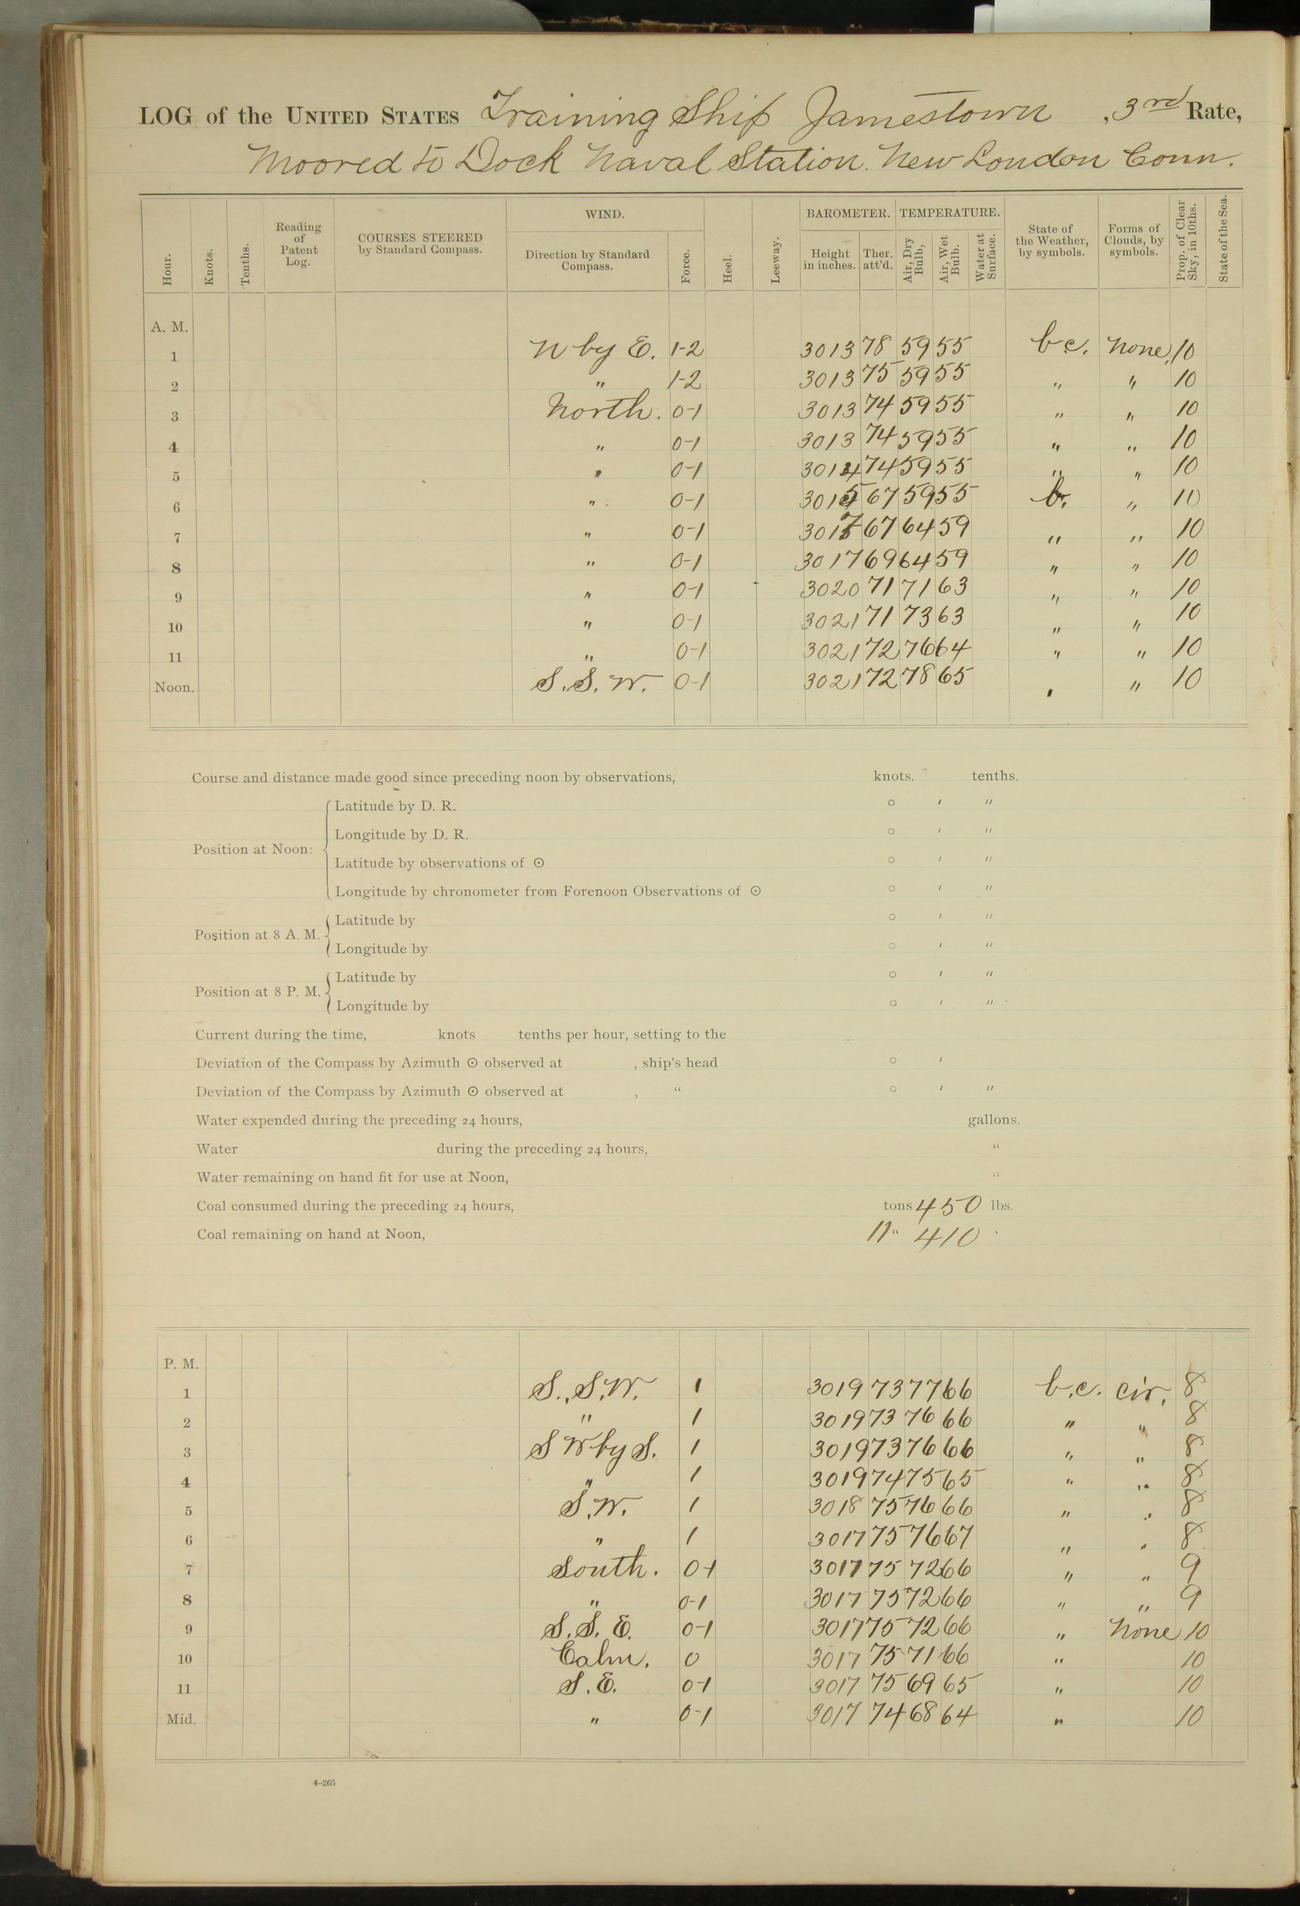 LOG of the UNITED STATES Training Ship Jamestown , 3rd Rate,
Moored to Dock Naval Station. New London Conn.
Hour. Knots. Tenths. Reading of Patent Log. COURSES STEERED by Standard Compass. WIND. Direction by Standard Compass. Force. Heel. Leeway. BAROMETER. Height in inches. Ther. att'd. TEMPERATURE. Air, Dry Bulb, Air, Wet Bulb. Water at Surface. State of the Weather, by symbols. Forms of Clouds, by symbols. Prop. of Clear Sky, in 10ths. State of the Sea.
A. M.
1 N by E. 1-2 3013 78 59 55 b.c. None. 10
2 " 1-2 3013 75 59 55 " " 10
3 North. 0-1 3013 74 59 55 " " 10
4 " 0-1 3013 74 59 55 " " 10
5 " 0-1 3014 74 59 55 " " 10
6 " 0-1 3015 67 59 55 b. " 10
7 " 0-1 3017 67 64 59 " " 10
8 " 0-1 3017 69 64 59 " " 10
9 " 0-1 3020 71 71 63 " " 10
10 " 0-1 3021 71 73 63 " " 10
11 " 0-1 3021 72 76 64 " " 10
Noon. S.S.W. 0-1 3021 72 78 65 " " 10
Course and distance made good since preceding noon by observations, knots. tenths.
Position at Noon: Latitude by D. R. ° ′ ″
Longitude by D. R. ° ′ ″
Latitude by observations of ☉ ° ′ ″
Longitude by chronometer from Forenoon Observations of ☉ ° ′ ″
Position at 8 A. M. Latitude by ° ′ ″
Longitude by ° ′ ″
Position at 8 P. M. Latitude by ° ′ ″
Longitude by ° ′ ″
Current during the time, knots tenths per hour, setting to the
Deviation of the Compass by Azimuth ☉ observed at , ship's head ° ′
Deviation of the Compass by Azimuth ☉ observed at , “ ° ′ ″
Water expended during the preceding 24 hours, gallons.
Water during the preceding 24 hours, “
Water remaining on hand fit for use at Noon, “
Coal consumed during the preceding 24 hours, tons 450 lbs.
Coal remaining on hand at Noon, 11 “ 410 "
P. M.
1 S.S.W. 1 3019 73 77 66 b.c. cir. 8
2 " 1 3019 73 76 66 " " 8
3 S W by S. 1 3019 73 76 66 " " 8
4 " 1 3019 74 75 65 " " 8
5 S.W. 1 3018 75 76 66 " " 8
6 " 1 3017 75 76 67 " " 8
7 South. 0-1 3017 75 72 66 " " 9
8 " 0-1 3017 75 72 66 " " 9
9 S.S.E. 0-1 3017 75 72 66 " None 10
10 Calm. 0 3017 75 71 66 " 10
11 S.E. 0-1 3017 75 69 65 " 10
Mid. " 0-1 3017 74 68 64 " 10
4–265